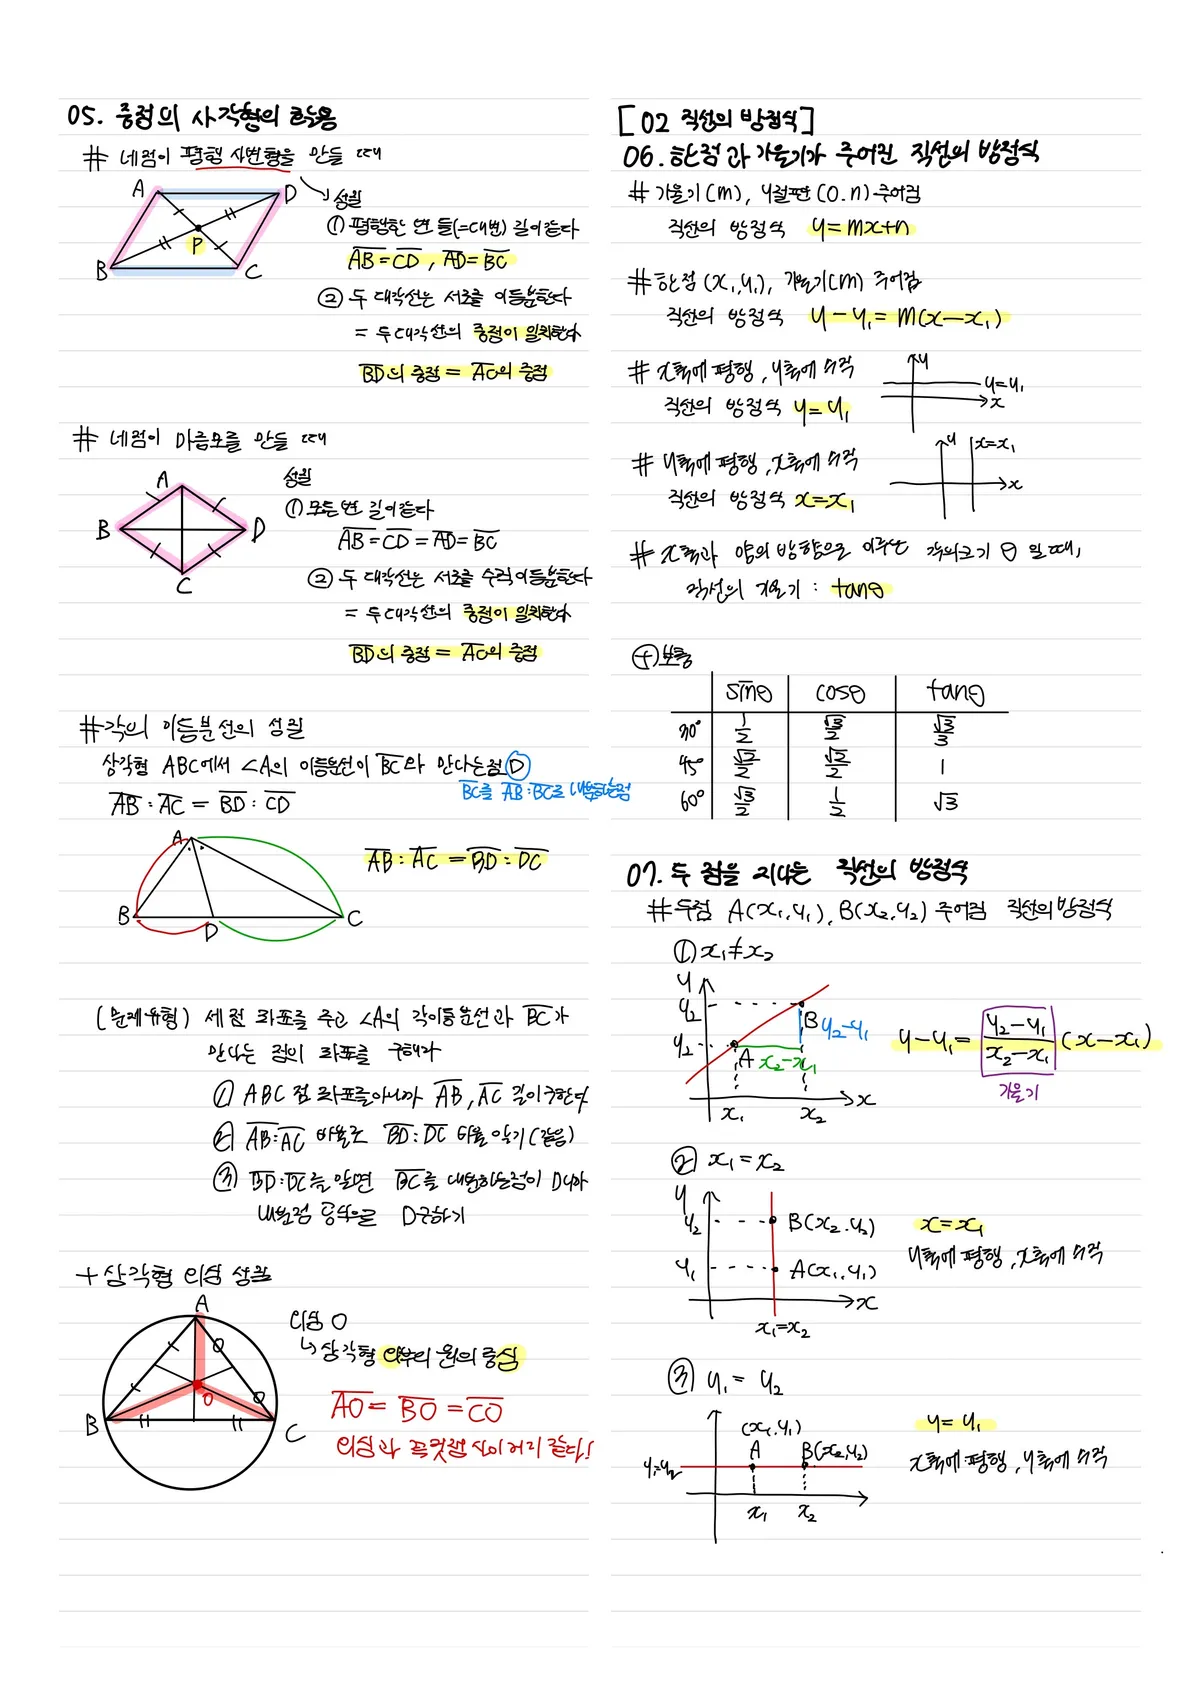 05. 중점의 사각형의 활용
# 네점이 평행 사변형을 만들 때
A D
P
B C
성질
① 평행한 변 들(=대변) 길이같다
AB=CD, AD=BC
② 두 대각선은 서로를 이등분한다
= 두 대각선의 중점이 일치한다
BD의 중점 = AC의 중점
# 네점이 마름모를 만들 때
A
B D
C
성질
① 모든변 길이같다
AB=CD=AD=BC
② 두 대각선은 서로를 수직이등분한다
= 두 대각선의 중점이 일치한다
BD의 중점 = AC의 중점
#각의 이등분선의 성질
삼각형 ABC에서 ∠A의 이등분선이 BC와 만나는점 D
BC를 AB:BC로 내분하는점
AB:AC = BD:CD
A
B D C
AB:AC = BD:DC
(문제유형) 세 점 좌표를 주고 ∠A의 각이등분선과 BC가
만나는 점의 좌표를 구해라
① ABC 점 좌표를아니까 AB, AC 길이구한다
② AB:AC 비율로 BD:DC 비율 알기(같음)
③ BD:DC를 알면 BC를 내분하는점이 D니까
내분점 공식으로 D구하기
+ 삼각형 외심 성질
A
O
B C
외심 O
↳ 삼각형 외부의 원의 중심
AO = BO = CO
외심과 꼭짓점 사이 거리 같다!
[02 직선의 방정식]
06. 한점과 기울기가 주어진 직선의 방정식
# 기울기(m), y절편(0.n) 주어짐
직선의 방정식 y=mx+n
# 한점 (x₁,y₁), 기울기(m) 주어짐
직선의 방정식 y-y₁=m(x-x₁)
# x축에 평행, y축에 수직
직선의 방정식 y=y₁
y
y=y₁
x
# y축에 평행, x축에 수직
직선의 방정식 x=x₁
y x=x₁
x
# x축과 양의 방향으로 이루는 각의크기 θ 일 때,
직선의 기울기 : tanθ
sinθ cosθ tanθ
30° 1/2 √3/2 √3/3
45° √2/2 √2/2 1
60° √3/2 1/2 √3
07. 두 점을 지나는 직선의 방정식
# 두점 A(x₁,y₁), B(x₂,y₂) 주어짐 직선의방정식
① x₁≠x₂
y
y₂
B y₂-y₁
y₂
A x₂-x₁
x₁ x₂ x
y-y₁ = y₂-y₁/x₂-x₁ (x-x₁)
기울기
② x₁=x₂
y
y₂ B(x₂.y₂)
y₁ A(x₁,y₁)
x
x₁=x₂
x=x₁
y축에 평행, x축에 수직
③ y₁=y₂
(x₁,y₁)
A B(x₂,y₂)
y₁=y₂
x₁ x₂
y=y₁
x축에 평행, y축에 수직